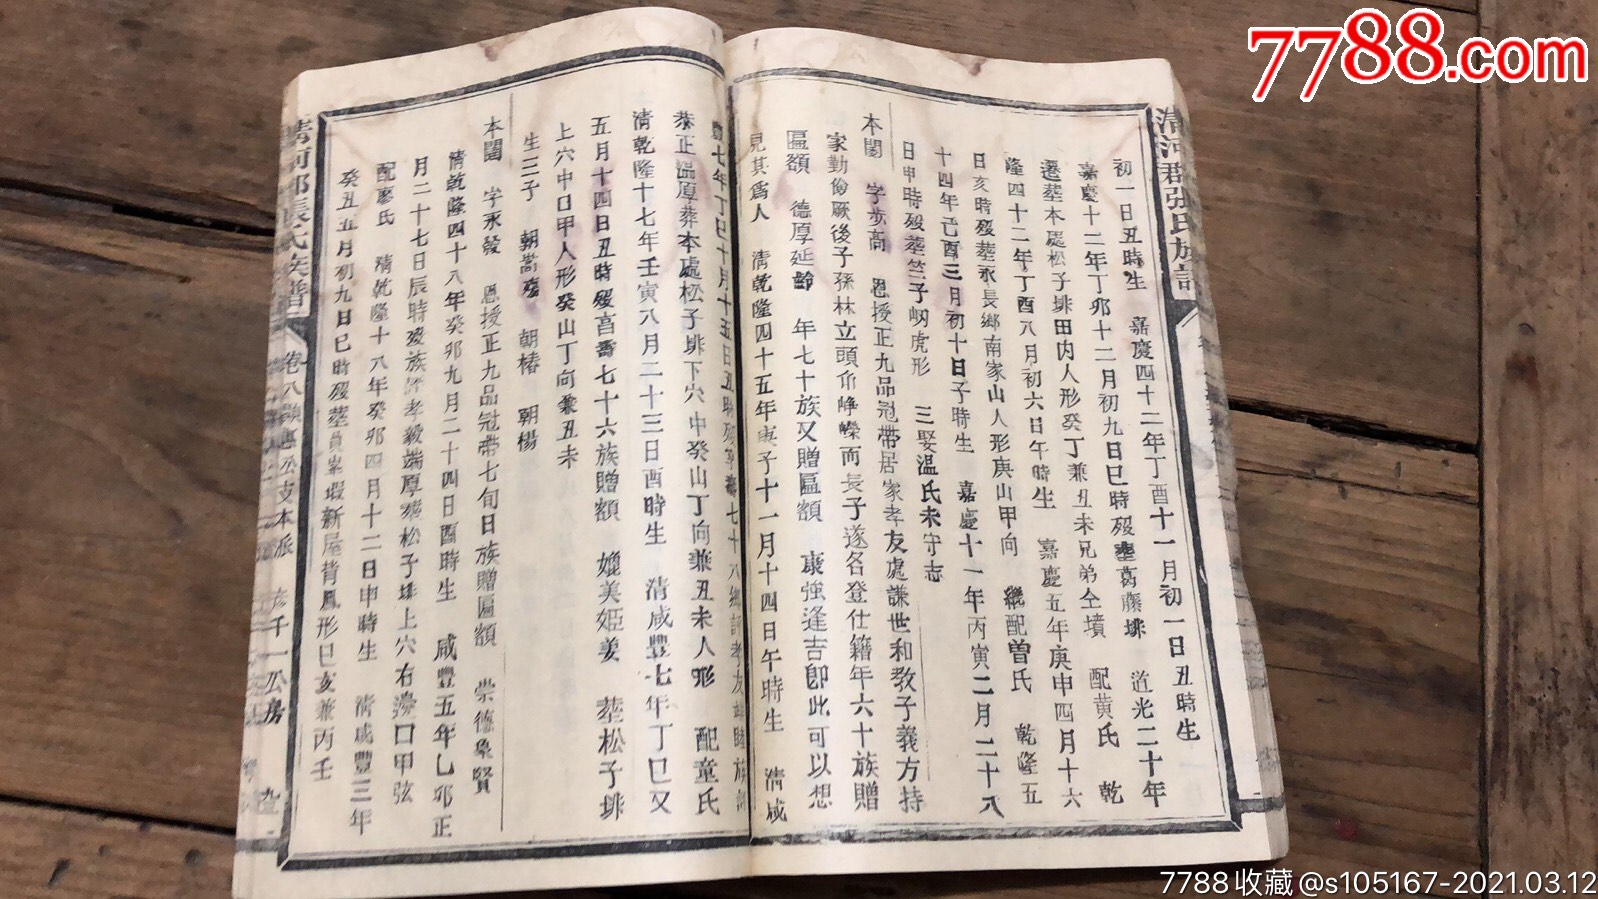 7788.com
清河群張氏族譜
初一日丑時生 嘉慶四十二年丁酉十一月初一日丑時生
嘉慶十二年丁卯十二月初九日巳時歿葬葛藤排 道光二十年
遷葬本處松子排田內人形癸丁兼丑未兄弟仝墳 配黃氏 乾
隆四十二年丁酉八月初六日午時生 嘉慶五年庚申四月十六
日亥時歿葬永長鄉南家山人形庚山甲向 繼配曾氏 乾隆五
十四年己酉三月初十日子時生 嘉慶十一年丙寅二月二十八
日申時歿葬竺子㘭虎形 三娶温氏未守志
本閶 字步高 恩授正九品冠帶居家孝友處謙世和教子義方持
家勤儉厥後子孫林立頭角崢嶸而長子遂名登仕籍年六十族贈
區額 德厚延齡 年七十族又贈區額 康強逢吉卽此可以想
見其爲人 清乾隆四十五年庚子十一月十四日午時生 清咸
豐七年丁巳十月十五日丑時歿享壽七十八
恭正溫厚葬本處松子排下穴中癸山丁向兼丑未人形 配童氏
清乾隆十七年壬寅八月二十三日酉時生 清咸豐七年丁巳又
五月十四日丑時歿言壽七十六族贈額 媲美姬姜 葬松子排
上穴中日甲人形癸山丁向兼丑未
生三子 朝嵩 朝椿 朝楊
本閶 字永發 恩授正九品冠帶七旬日族贈區額 崇德象賢
清乾隆四十八年癸卯九月二十四日酉時生 咸豐五年乙卯正
月二十七日辰時歿族評孝毅端厚葬松子排上穴右邊口甲弦
配廖氏 清乾隆十八年癸卯四月十二日申時生 清咸豐三年
癸丑五月初九日巳時歿葬員峯塅新屋背鳳形巳亥兼丙壬
清河郡張氏族譜 卷八 支本派 彥千一公房 九
7788收藏@s105167-2021.03.12